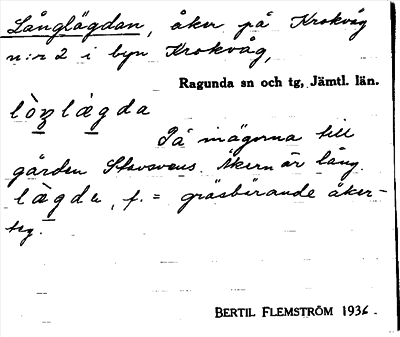 Långlägdan, åker på Krokvåg
n:r 2 i byn Krokvåg,
Ragunda sn och tg, Jämtl. län.
lòŋlàgda
På inägorna till
gården Stavsvens. Åkern är lång.
làgda, f. = gräsbärande åker-
teg.
BERTIL FLEMSTRÖM 1936.